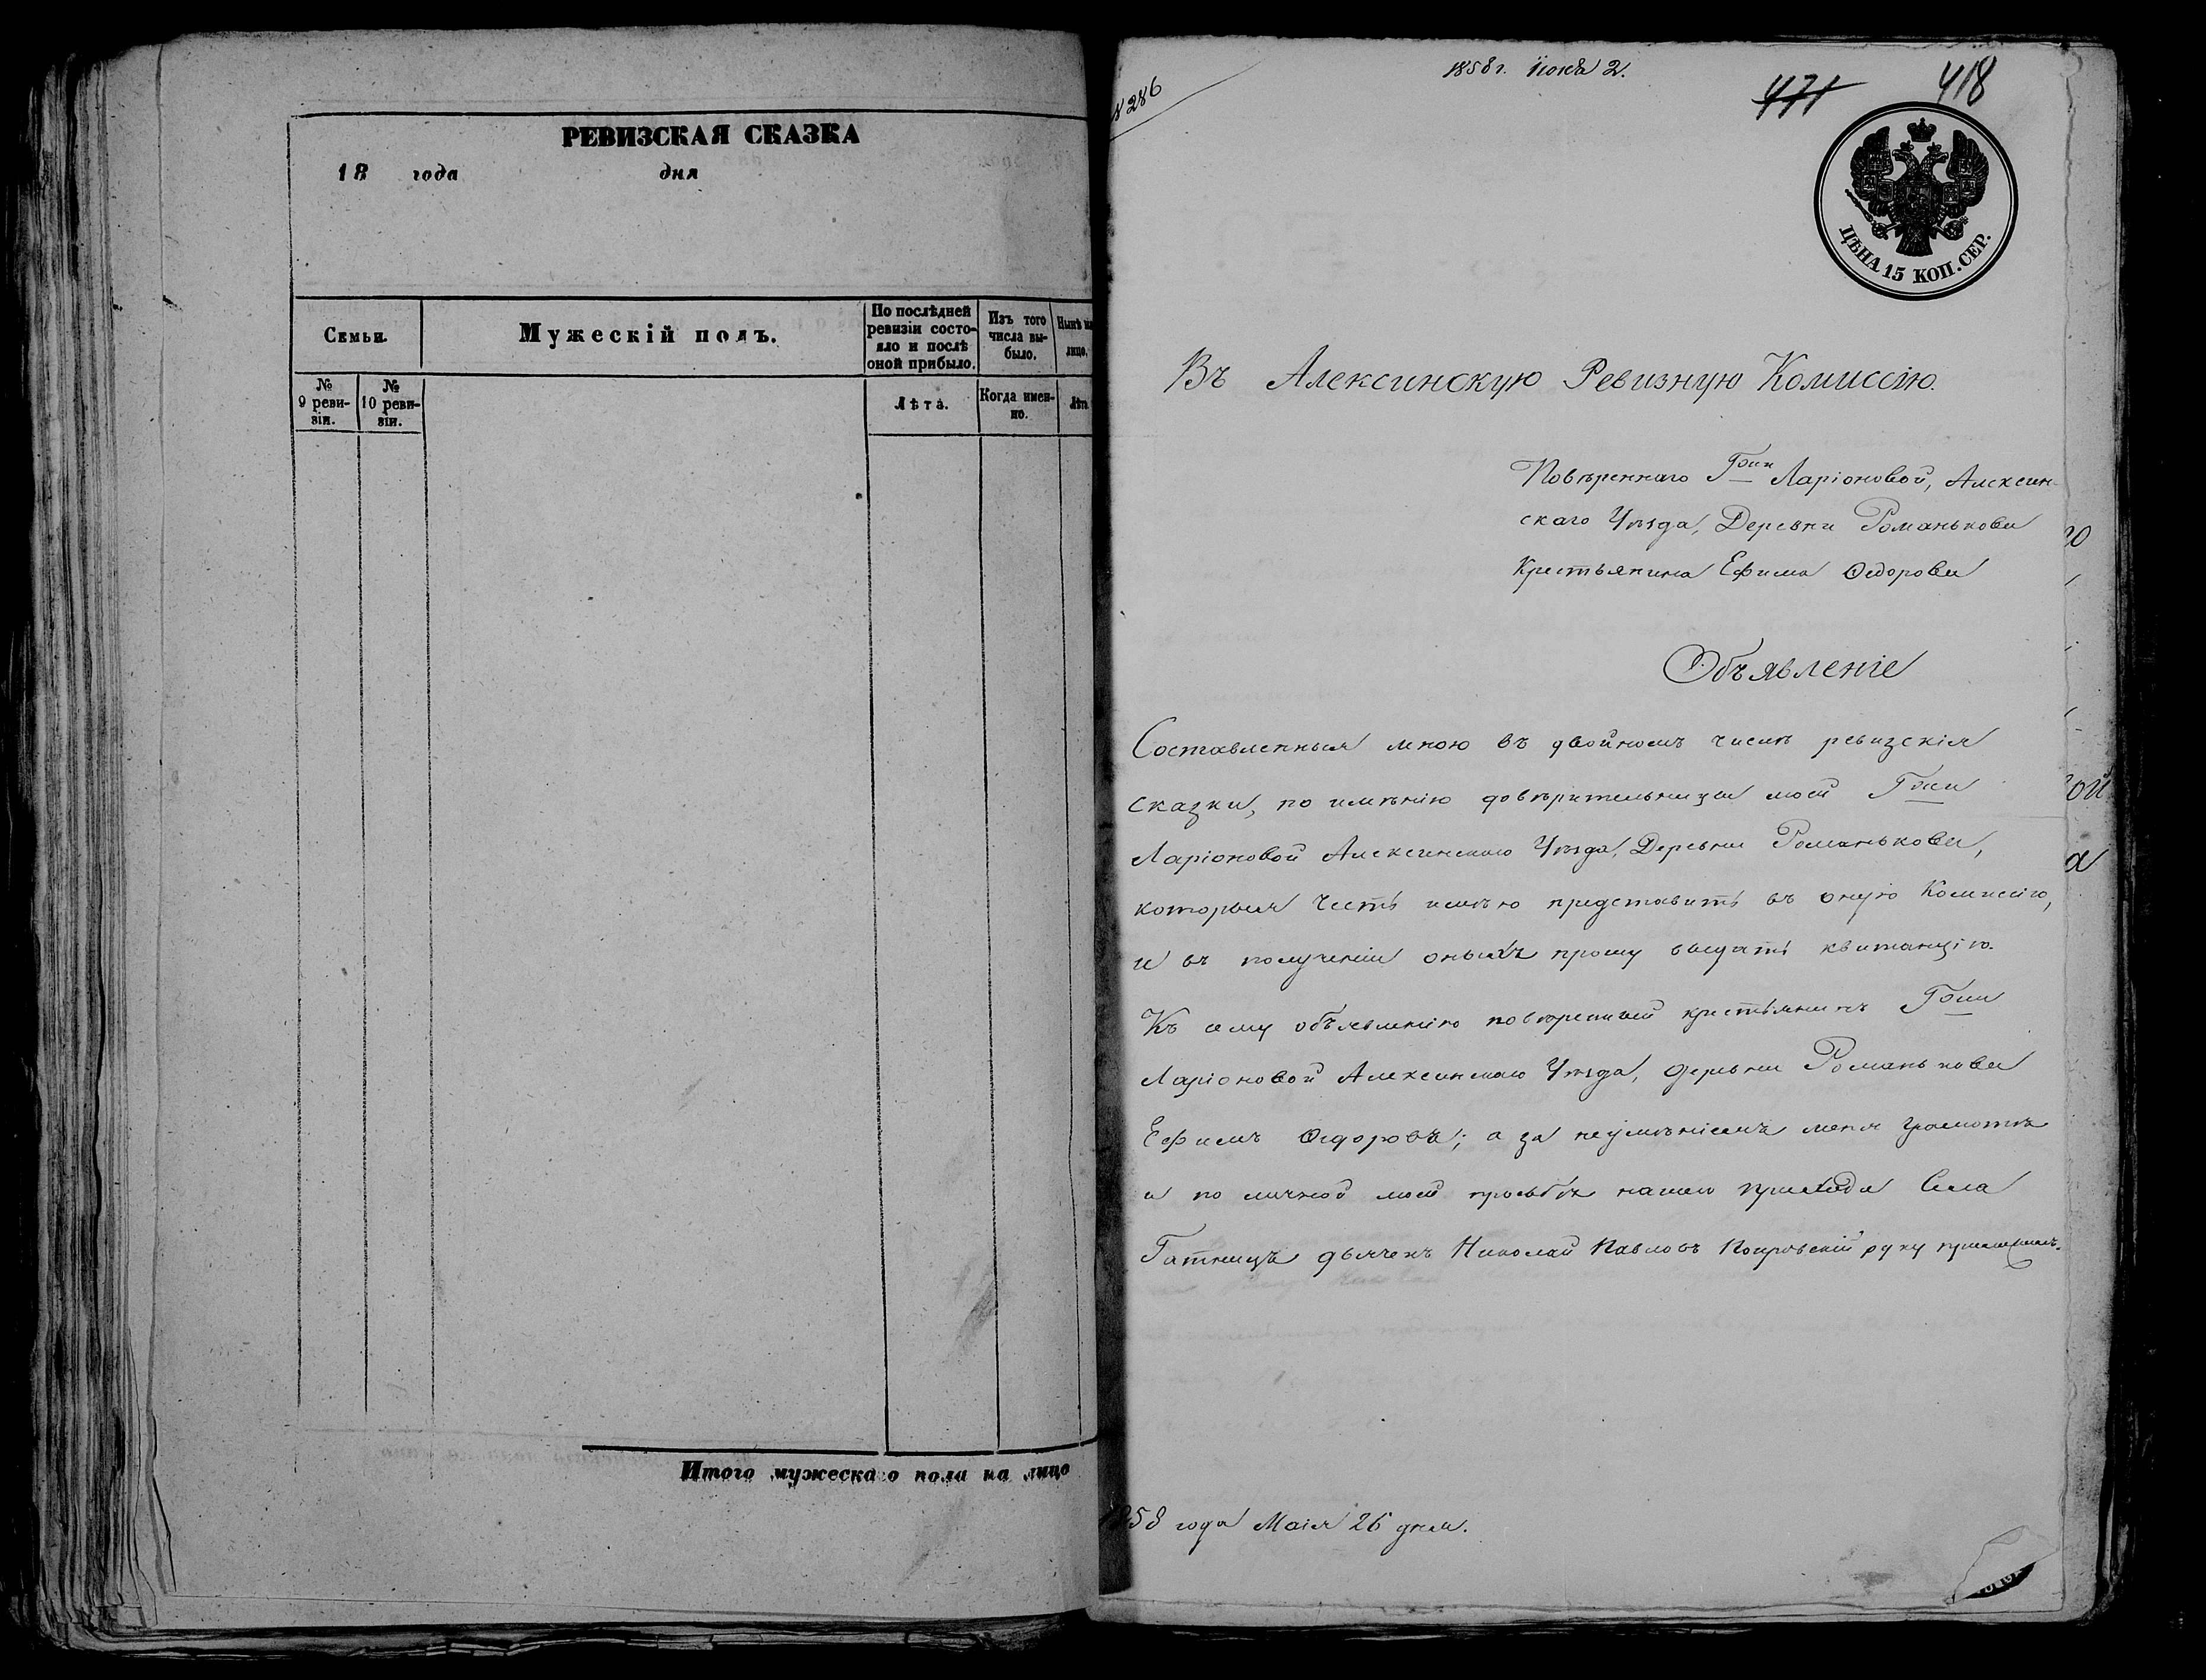 РЕВИЗСКАЯ СКАЗКА
18 года дня
Семьи.
Мужескій полъ.
По послѣдней ревизіи состо-
яло и послѣ
оной прибыло.
Изъ того
числа вы-
было.
Нынѣ на
лицо.
№
9 реви-
зіи.
№
10 реви-
зіи.
Лѣта.
Когда имен-
но.
Лѣта
Итого мужескаго пола на лицо
1858 г. Іюня 2.
286
471
418
ЦѢНА 15 КОП. СЕР.
Въ Алексинскую Ревизную Коммиссію.
Повѣреннаго Гжи Ларіоновой, Алексин-
скаго Уѣзда, Деревни Романьковы
Крестьянина Ефима Ѳедорова
Объявленіе
Составленныя мною въ двойномъ числѣ ревизскія
сказки, по имѣнію довѣрительницы моей Гжи
Ларіоновой Алексинскаго Уѣзда, Деревни Романьковы,
которыя честь имѣю представить въ оную Комиссію,
и въ полученіи оныхъ прошу выдать квитанцію.
Къ сему объявленію повѣренный крестьянинъ Гжи
Ларіоновой Алексинскаго Уѣзда, деревни Романьковы
Ефимъ Ѳедоровъ; а за неумѣніемъ меня грамотѣ
и по личной моей прозьбѣ нашего прихода Села
дьячекъ Николай Павловъ Покровскій руку приложилъ.
1858 года Маія 26 дня.